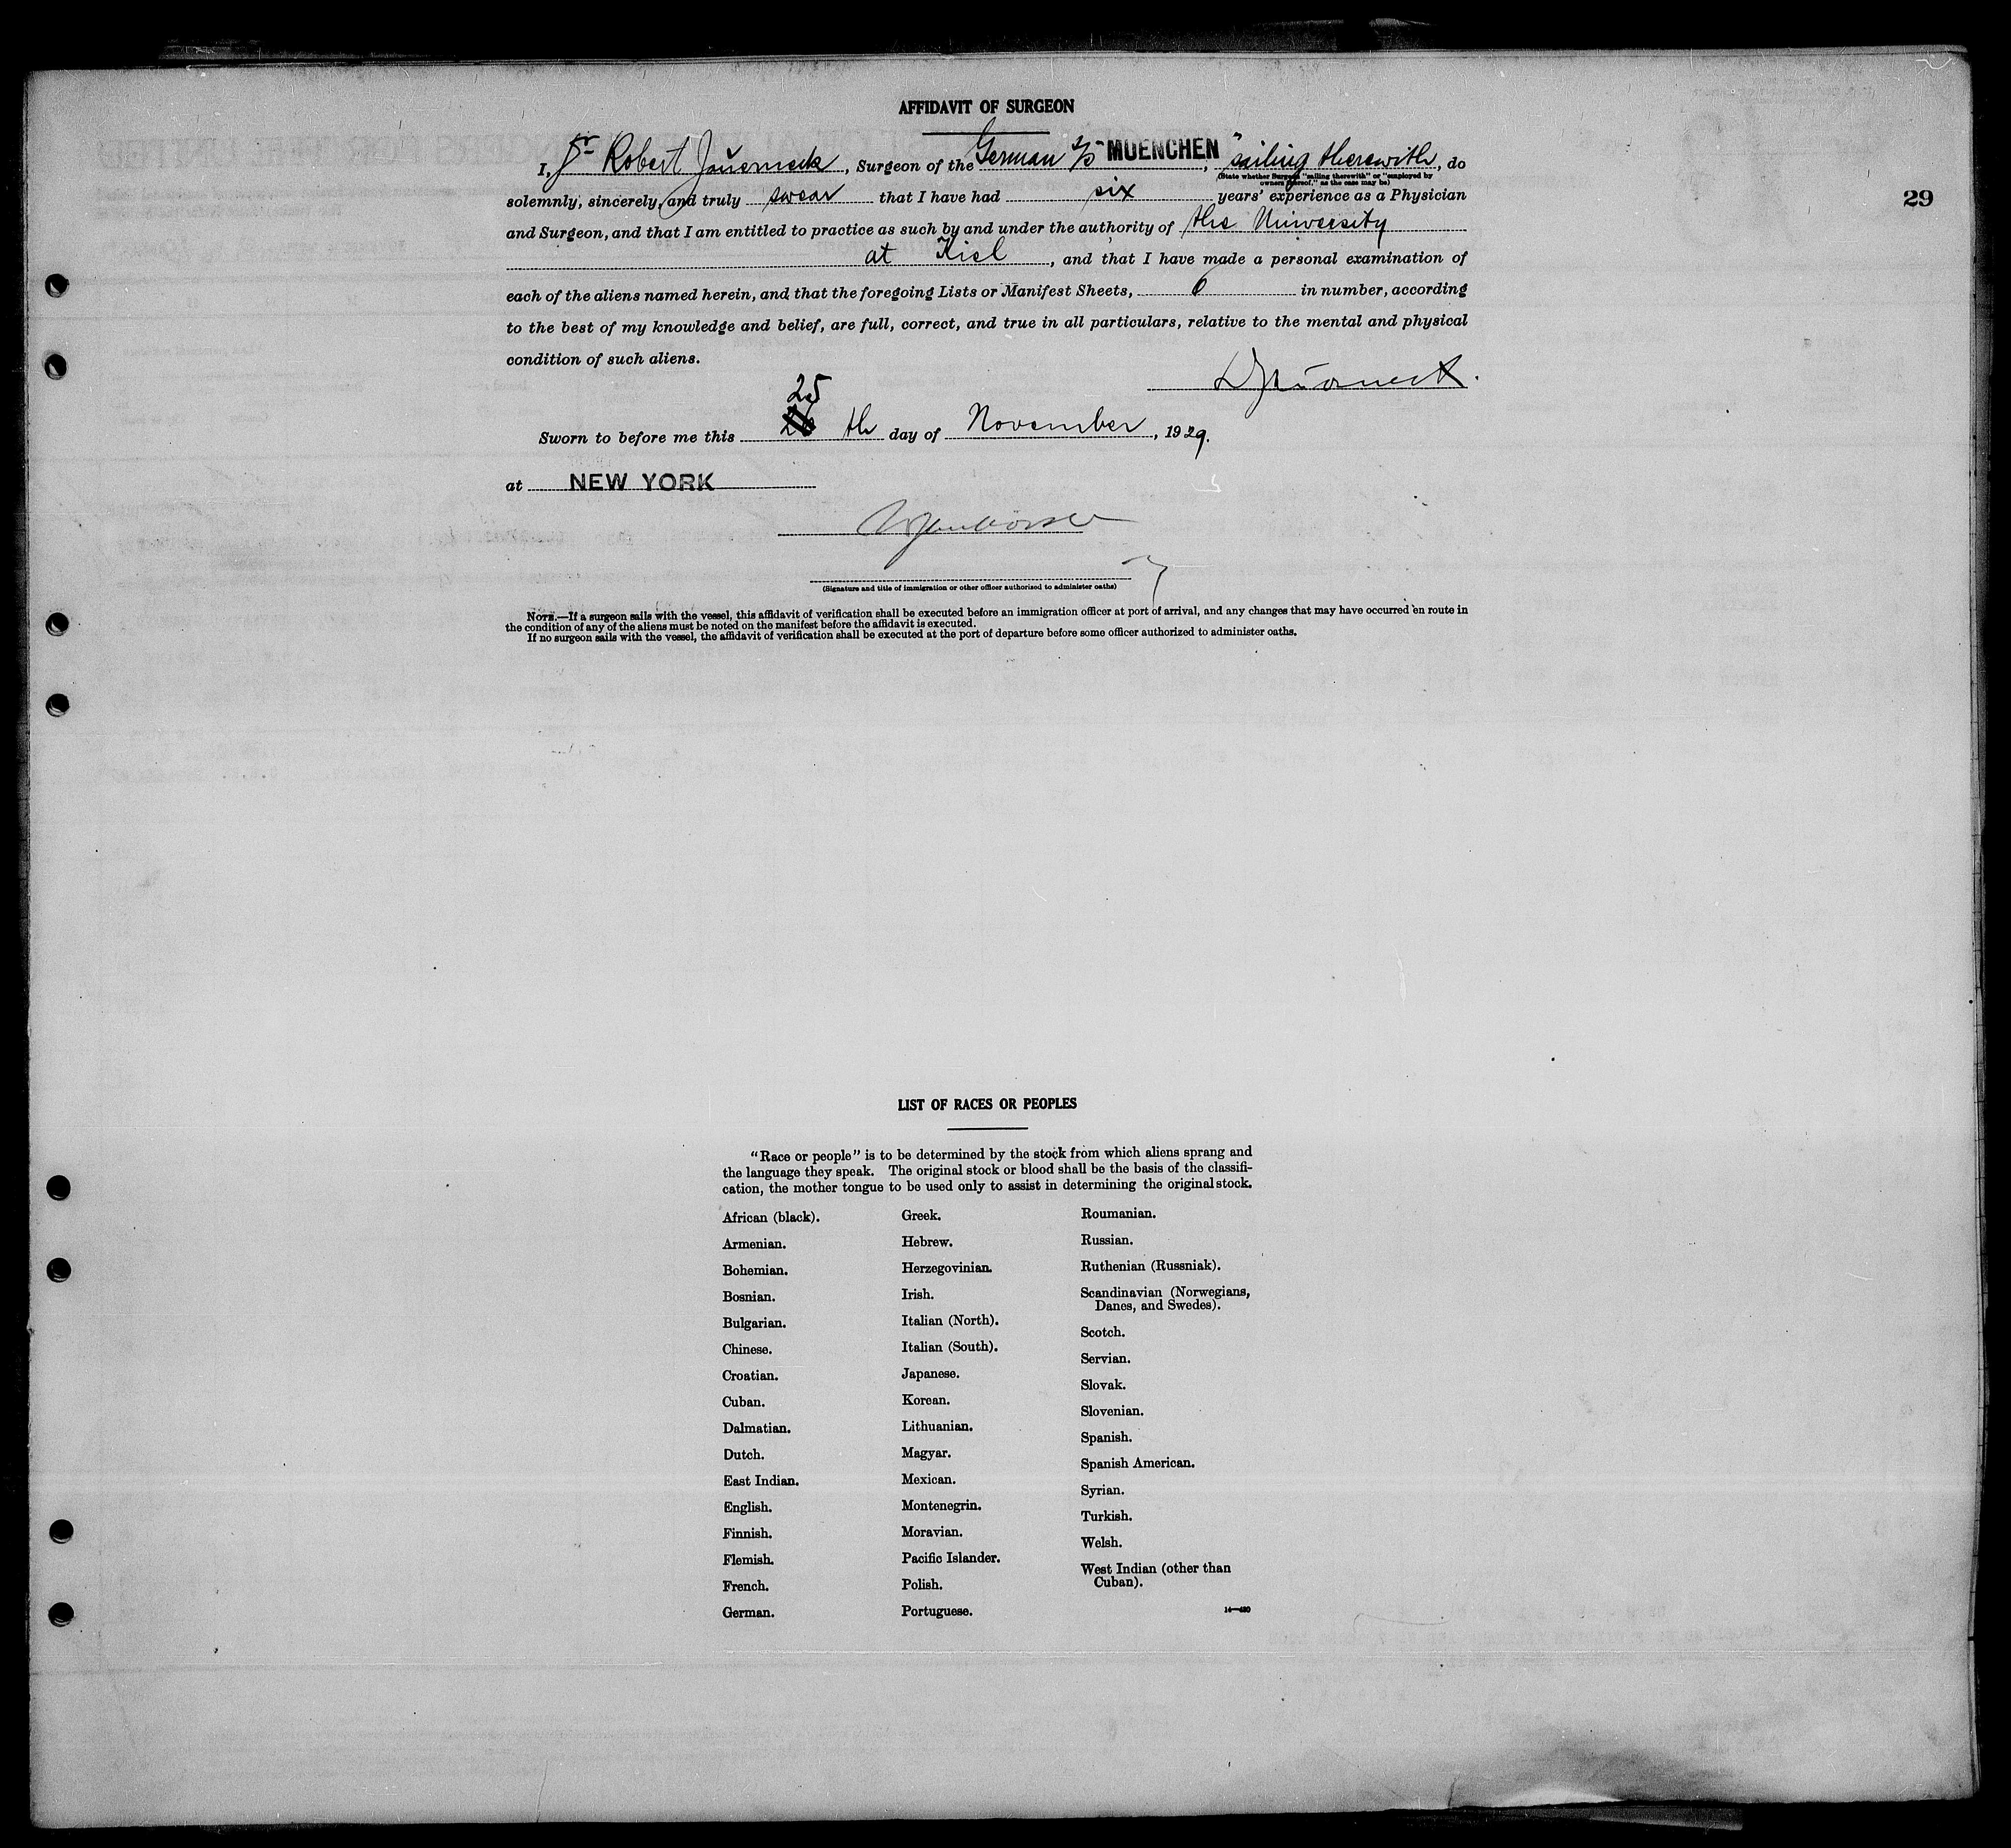 AFFIDAVIT OF SURGEON
29
I, Dr Robert, Surgeon of the German S/S "MUENCHEN", "sailing therewith, do
(State whether Surgeon "sailing therewith" or "employed by
owners thereof," as the case may be)
solemnly, sincerely, and truly swear that I have had six years' experience as a Physician
and Surgeon, and that I am entitled to practice as such by and under the authority of the University
at Kiel, and that I have made a personal examination of
each of the aliens named herein, and that the foregoing Lists or Manifest Sheets, 6 in number, according
to the best of my knowledge and belief, are full, correct, and true in all particulars, relative to the mental and physical
condition of such aliens.
25
Sworn to before me this 26 th day of November, 1929.
at NEW YORK
(Signature and title of immigration or other officer authorized to administer oaths)
NOTE.—If a surgeon sails with the vessel, this affidavit of verification shall be executed before an immigration officer at port of arrival, and any changes that may have occurred en route in
the condition of any of the aliens must be noted on the manifest before the affidavit is executed.
If no surgeon sails with the vessel, the affidavit of verification shall be executed at the port of departure before some officer authorized to administer oaths.
LIST OF RACES OR PEOPLES
"Race or people" is to be determined by the stock from which aliens sprang and
the language they speak. The original stock or blood shall be the basis of the classifi-
cation, the mother tongue to be used only to assist in determining the original stock.
African (black).
Armenian.
Bohemian.
Bosnian.
Bulgarian.
Chinese.
Croatian.
Cuban.
Dalmatian.
Dutch.
East Indian.
English.
Finnish.
Flemish.
French.
German.
Greek.
Hebrew.
Herzegovinian.
Irish.
Italian (North).
Italian (South).
Japanese.
Korean.
Lithuanian.
Magyar.
Mexican.
Montenegrin.
Moravian.
Pacific Islander.
Polish.
Portuguese.
Roumanian.
Russian.
Ruthenian (Russniak).
Scandinavian (Norwegians,
Danes, and Swedes).
Scotch.
Servian.
Slovak.
Slovenian.
Spanish.
Spanish American.
Syrian.
Turkish.
Welsh.
West Indian (other than
Cuban).
14—430